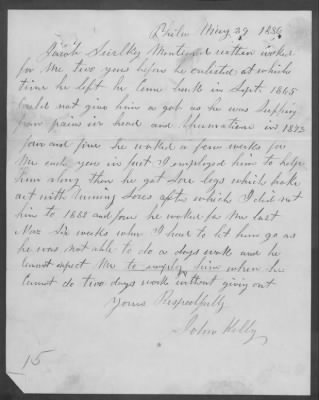 Phila May 29 1886
Jacob Mentioned within worked
for Me two years before he enlisted at which
time he left he Come back in Sept. 1865
Could not give him a gob as he was suffering
from pains in head and Rhumatism in 1873
four and five he worked a few weeks for
Me each year in fact I employed him to help
him along then he got Sore legs which broke
out with Running Sores after which I did not
him to 1883 and four he worked for Me last
Nov Six weeks when I had to let him go as
he was not able to do a days work and he
Cannot expect Me to employ him when he
Cannot do two days work without giving out
Yours Respectfully
John Kelly
15